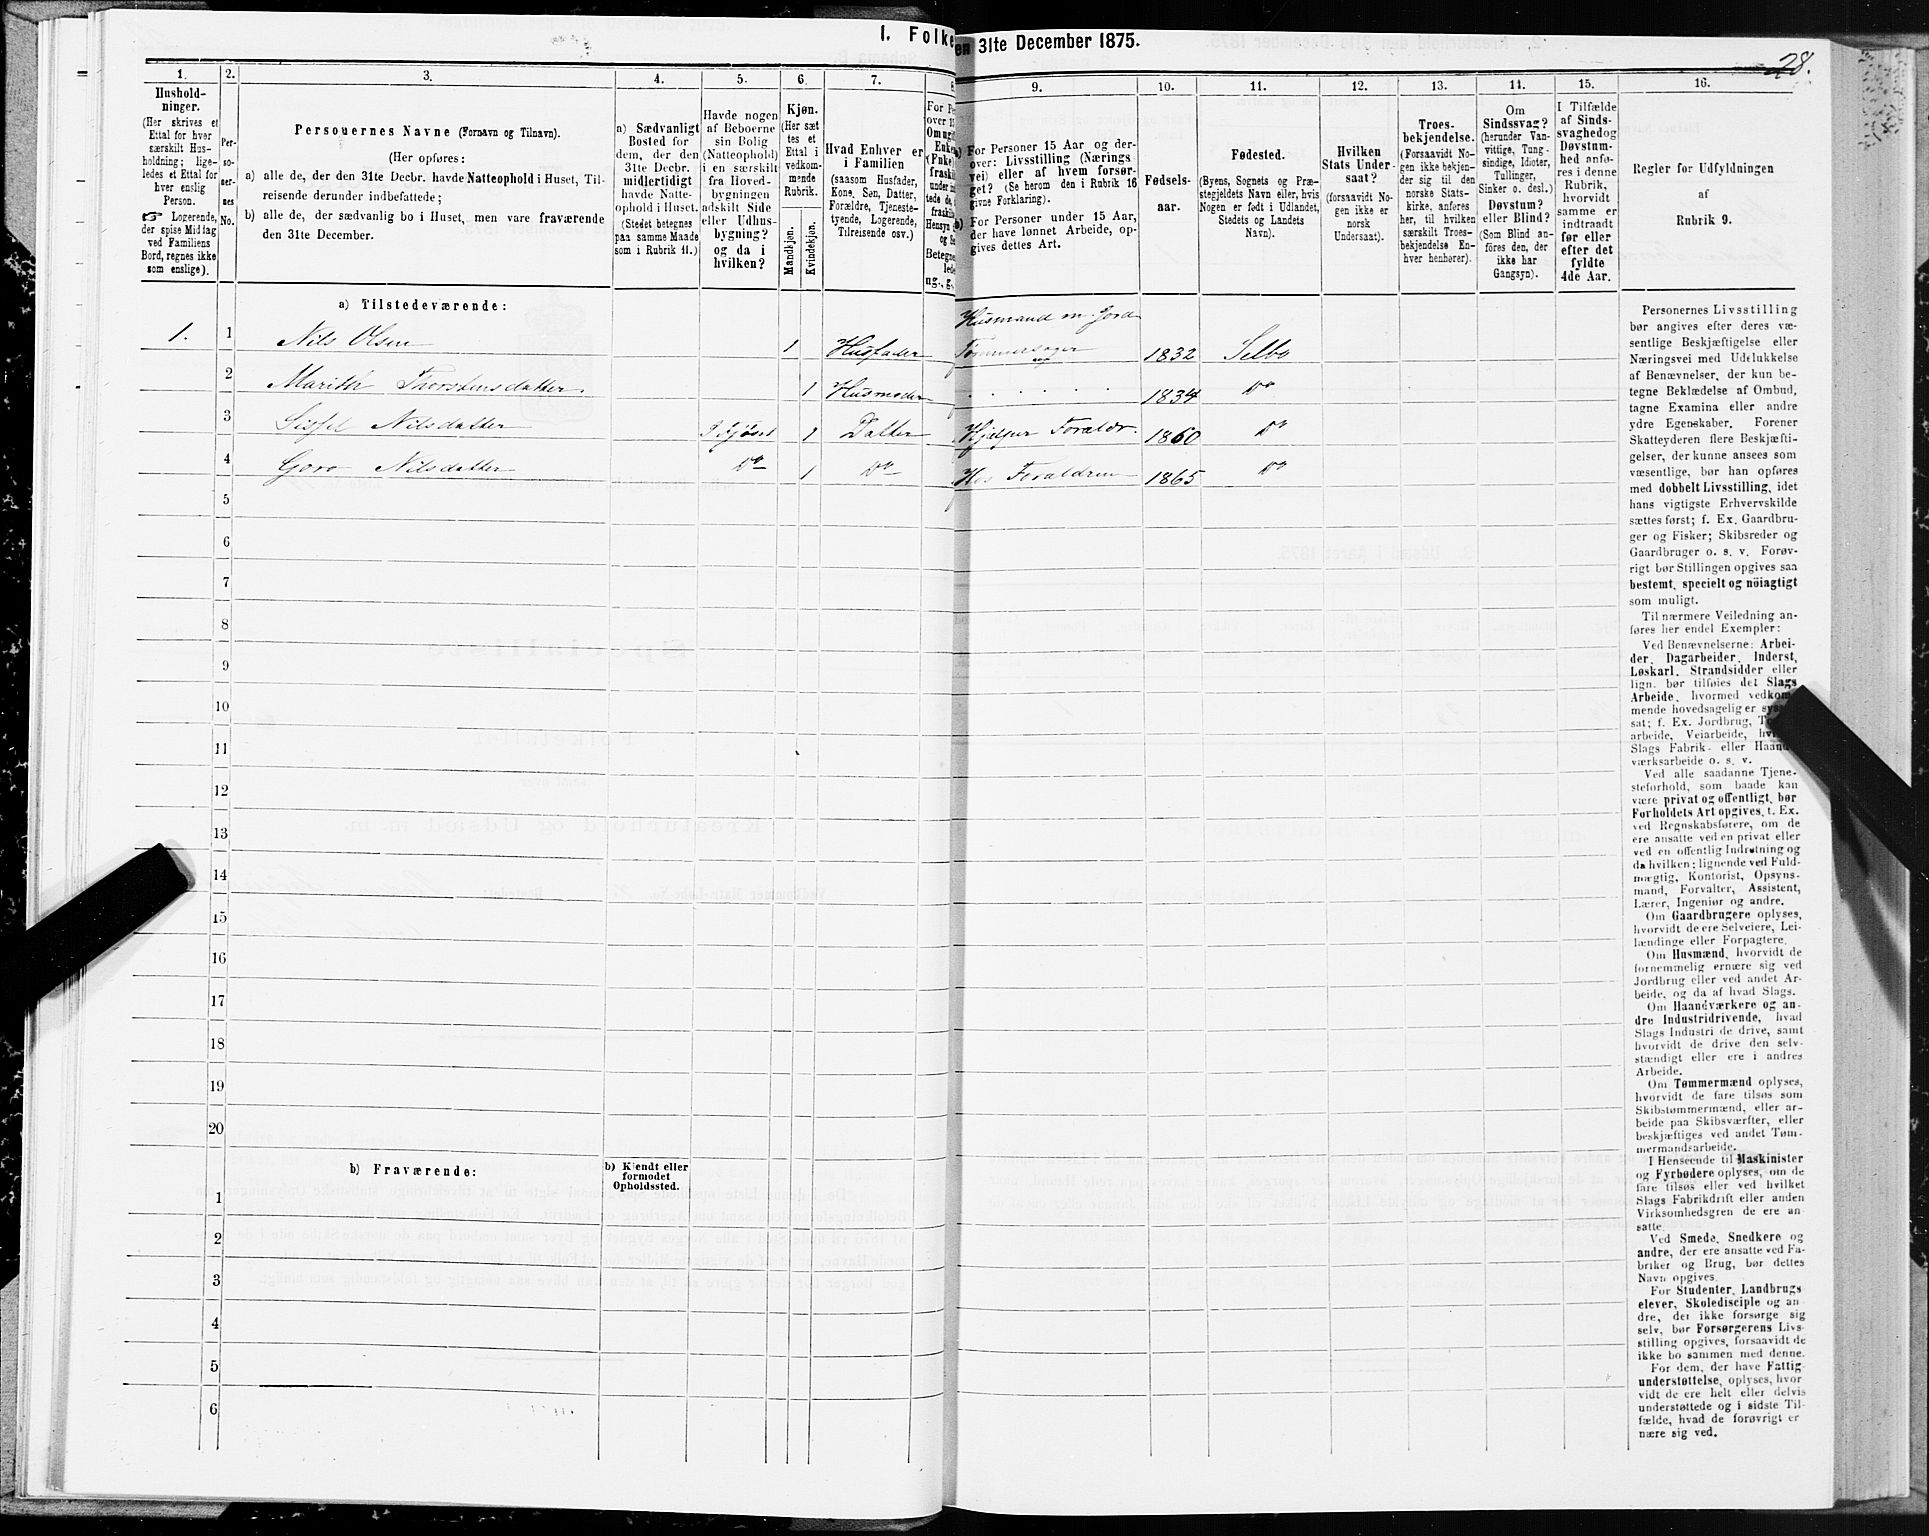 1. Folke
en 31te December 1875.
28.
1.
2.
3.
4.
5.
6.
7.
8
9.
10.
11.
12.
13.
14.
15.
16.
Hushold-
ninger.
(Her skrives et
Ettal for hver
særskilt Hus-
holdning; lige-
ledes et Ettal for
hver enslig
Person.
☞ Logerende,
der spise Middag
ved Familiens
Bord, regnes ikke
som enslige).
Per-
so-
ner-
nes
No.
Personernes Navne (Fornavn og Tilnavn).
(Her opføres:
a) alle de, der den 31te Decbr. havde Natteophold i Huset, Til-
reisende derunder indbefattede;
b) alle de, der sædvanlig bo i Huset, men vare fraværende
den 31te December.
a) Sædvanligt
Bosted for
dem, der den
31te Decbr.
midlertidigt
havde Natte-
ophold i Huset.
(Stedet betegnes
paa samme Maade
som i Rubrik 11.)
Havde nogen
af Beboerne
sin Bolig
(Natteophold)
i en særskilt
fra Hoved-
bygningen
adskilt Side
eller Udhus-
bygning?
og da i
hvilken?
Kjøn.
(Her sæt
tes et
Ettal i
vedkom-
mende
Rubrik.
Mandkjøn.
Kvindekjøn.
Hvad Enhver er
i Familien
(saasom Husfader,
Kone, Søn, Datter,
Forældre, Tjeneste-
tyende, Logerende,
Tilreisende osv.)
For P
over 15
Om ugi
Enke
(Fnke)
fraskil
under in
tede de,
fraskil
Hensyn
og Se
Betegne
lede
ug., g.,
a) For Personer 15 Aar og der-
over: Livsstilling (Nærings
vei) eller af hvem forsør-
get? (Se herom den i Rubrik 16
givne Forklaring).
b) For Personer under 15 Aar,
der have lønnet Arbeide, op-
gives dettes Art.
Fødsels-
aar.
Fødested.
(Byens, Sognets og Præ-
stegjeldets Navn eller, hvis
Nogen er født i Udlandet,
Stedets og Landets
Navn).
Hvilken
Stats Under-
saat?
(forsaavidt No-
gen ikke er
norsk
Undersaat).
Troes-
bekjendelse.
(Forsaavidt No-
gen ikke bekjen-
der sig til den
norske Stats-
kirke, anføres
her, til hvilken
særskilt Troes-
bekjendelse En-
hver henhører).
Om
Sindssvag?
(herunder Van-
vittige, Tung-
sindige, Idioter,
Tullinger,
Sinker o. desl.)
Døvstum?
eller Blind?
(Som Blind an-
føres den, der
ikke har
Gangsyn).
I Tilfælde
af Sinds-
svaghedog
Døvstum-
hed anfø-
res i denne
Rubrik,
hvorvidt
samme er
indtraadt
før eller
efter det
fyldte
4de Aar.
Regler for Udfyldningen
af
Rubrik 9.
a) Tilstedeværende:
Husmand m. Jord
1. 1 Nils Olsen 1 Husfader Tømmersager 1832 Selbo
2 Marith Thorstensdatter 1 Husmoder 1834 Do
3 Sissel Nilsdatter I Fjøset 1 Datter Hjælper Forældr. 1860 Do
4 Goro Nilsdatter Do 1 Do Hos Forældren 1865 Do
5
6
7
8
9
10
11
12
13
14
15
16
17
18
19
20
b) Fraværende:
b) Kjendt eller
formodet
Opholdssted.
1
2
3
4
5
6
Personernes Livsstilling
bør angives efter deres væ-
sentlige Beskjæftigelse eller
Næringsvei med Udelukkelse
af Benævnelser, der kun be-
tegne Beklædelse af Ombud,
tagne Examina eller andre
ydre Egenskaber. Forener
Skatteyderen flere Beskjæfti-
gelser, der kunne ansees som
væsentlige, bør han opføres
med dobbelt Livsstilling, idet
hans vigtigste Erhvervskilde
sættes først; f. Ex. Gaardbru-
ger og Fisker; Skibsreder og
Gaardbruger o. s. v. Forøv-
rigt bør Stillingen opgives saa
bestemt, specielt og nöiagtigt
som muligt.
Til nærmere Veiledning an-
føres her endel Exempler:
Ved Benævnelserne: Arbei-
der, Dagarbeider, Inderst,
Løskarl, Strandsidder eller
lign. bør tilføies det Slags
Arbeide, hvormed vedkom-
mende hovedsagelig er syssel
sat; f. Ex. Jordbrug, T
arbeide, Veiarbeide, hv
Slags Fabrik- eller Haand-
værksarbeide o. s. v.
Ved alle saadanne Tjene-
steforhold, som baade kan
være privat og offentligt, bør
Forholdets Art opgives, t. Ex.
ved Regnskabsførere, om de
ere ansatte ved en privat eller
ved en offentlig Indretning og
da hvilken; lignende ved Fuld-
mægtig, Kontorist, Opsyns-
mand, Forvalter, Assistent,
Lærer, Ingeniør og andre.
Om Gaardbrugere oplyses,
hvorvidt de ere Selveiere, Lei-
lændinge eller Forpagtere.
Om Husmænd, hvorvidt de
fornemmelig ernære sig ved
Jordbrug eller ved andet Ar-
beide, og da af hvad Slags.
Om Haandværkere og an-
dre Industridrivende, hvad
Slags Industri de drive, samt
hvorvidt de drive den selv-
stændigt eller ere i andres
Arbeide.
Om Tømmermænd oplyses,
hvorvidt de fare tilsøs som
Skibstømmermænd, eller ar-
beide paa Skibsværfter, eller
beskjæftiges ved andet Tøm-
mermandsarbeide.
I Henseende til Maskinister
og Fyrbødere oplyses, om de
fare tilsøs eller ved hvilket
Slags Fabrikdrift eller anden
Virksomhedsgren de ere an-
satte.
Ved Smede, Snedkere og
andre, der ere ansatte ved Fa-
briker og Brug, bør dettes
Navn opgives.
For Studenter, Landbrugs
elever, Skoledisciple og an-
dre, der ikke forsørge sig
selv, bør Forsørgerens Livs-
stilling opgives, forsaavidt de
ikke bo sammen med denne.
For dem, der have Fattig-
understøttelse, oplyses, hvor
vidt de ere helt eller delvis
understøttede og i sidste Til-
fælde, hvad de forøvrigt er
nære sig ved.